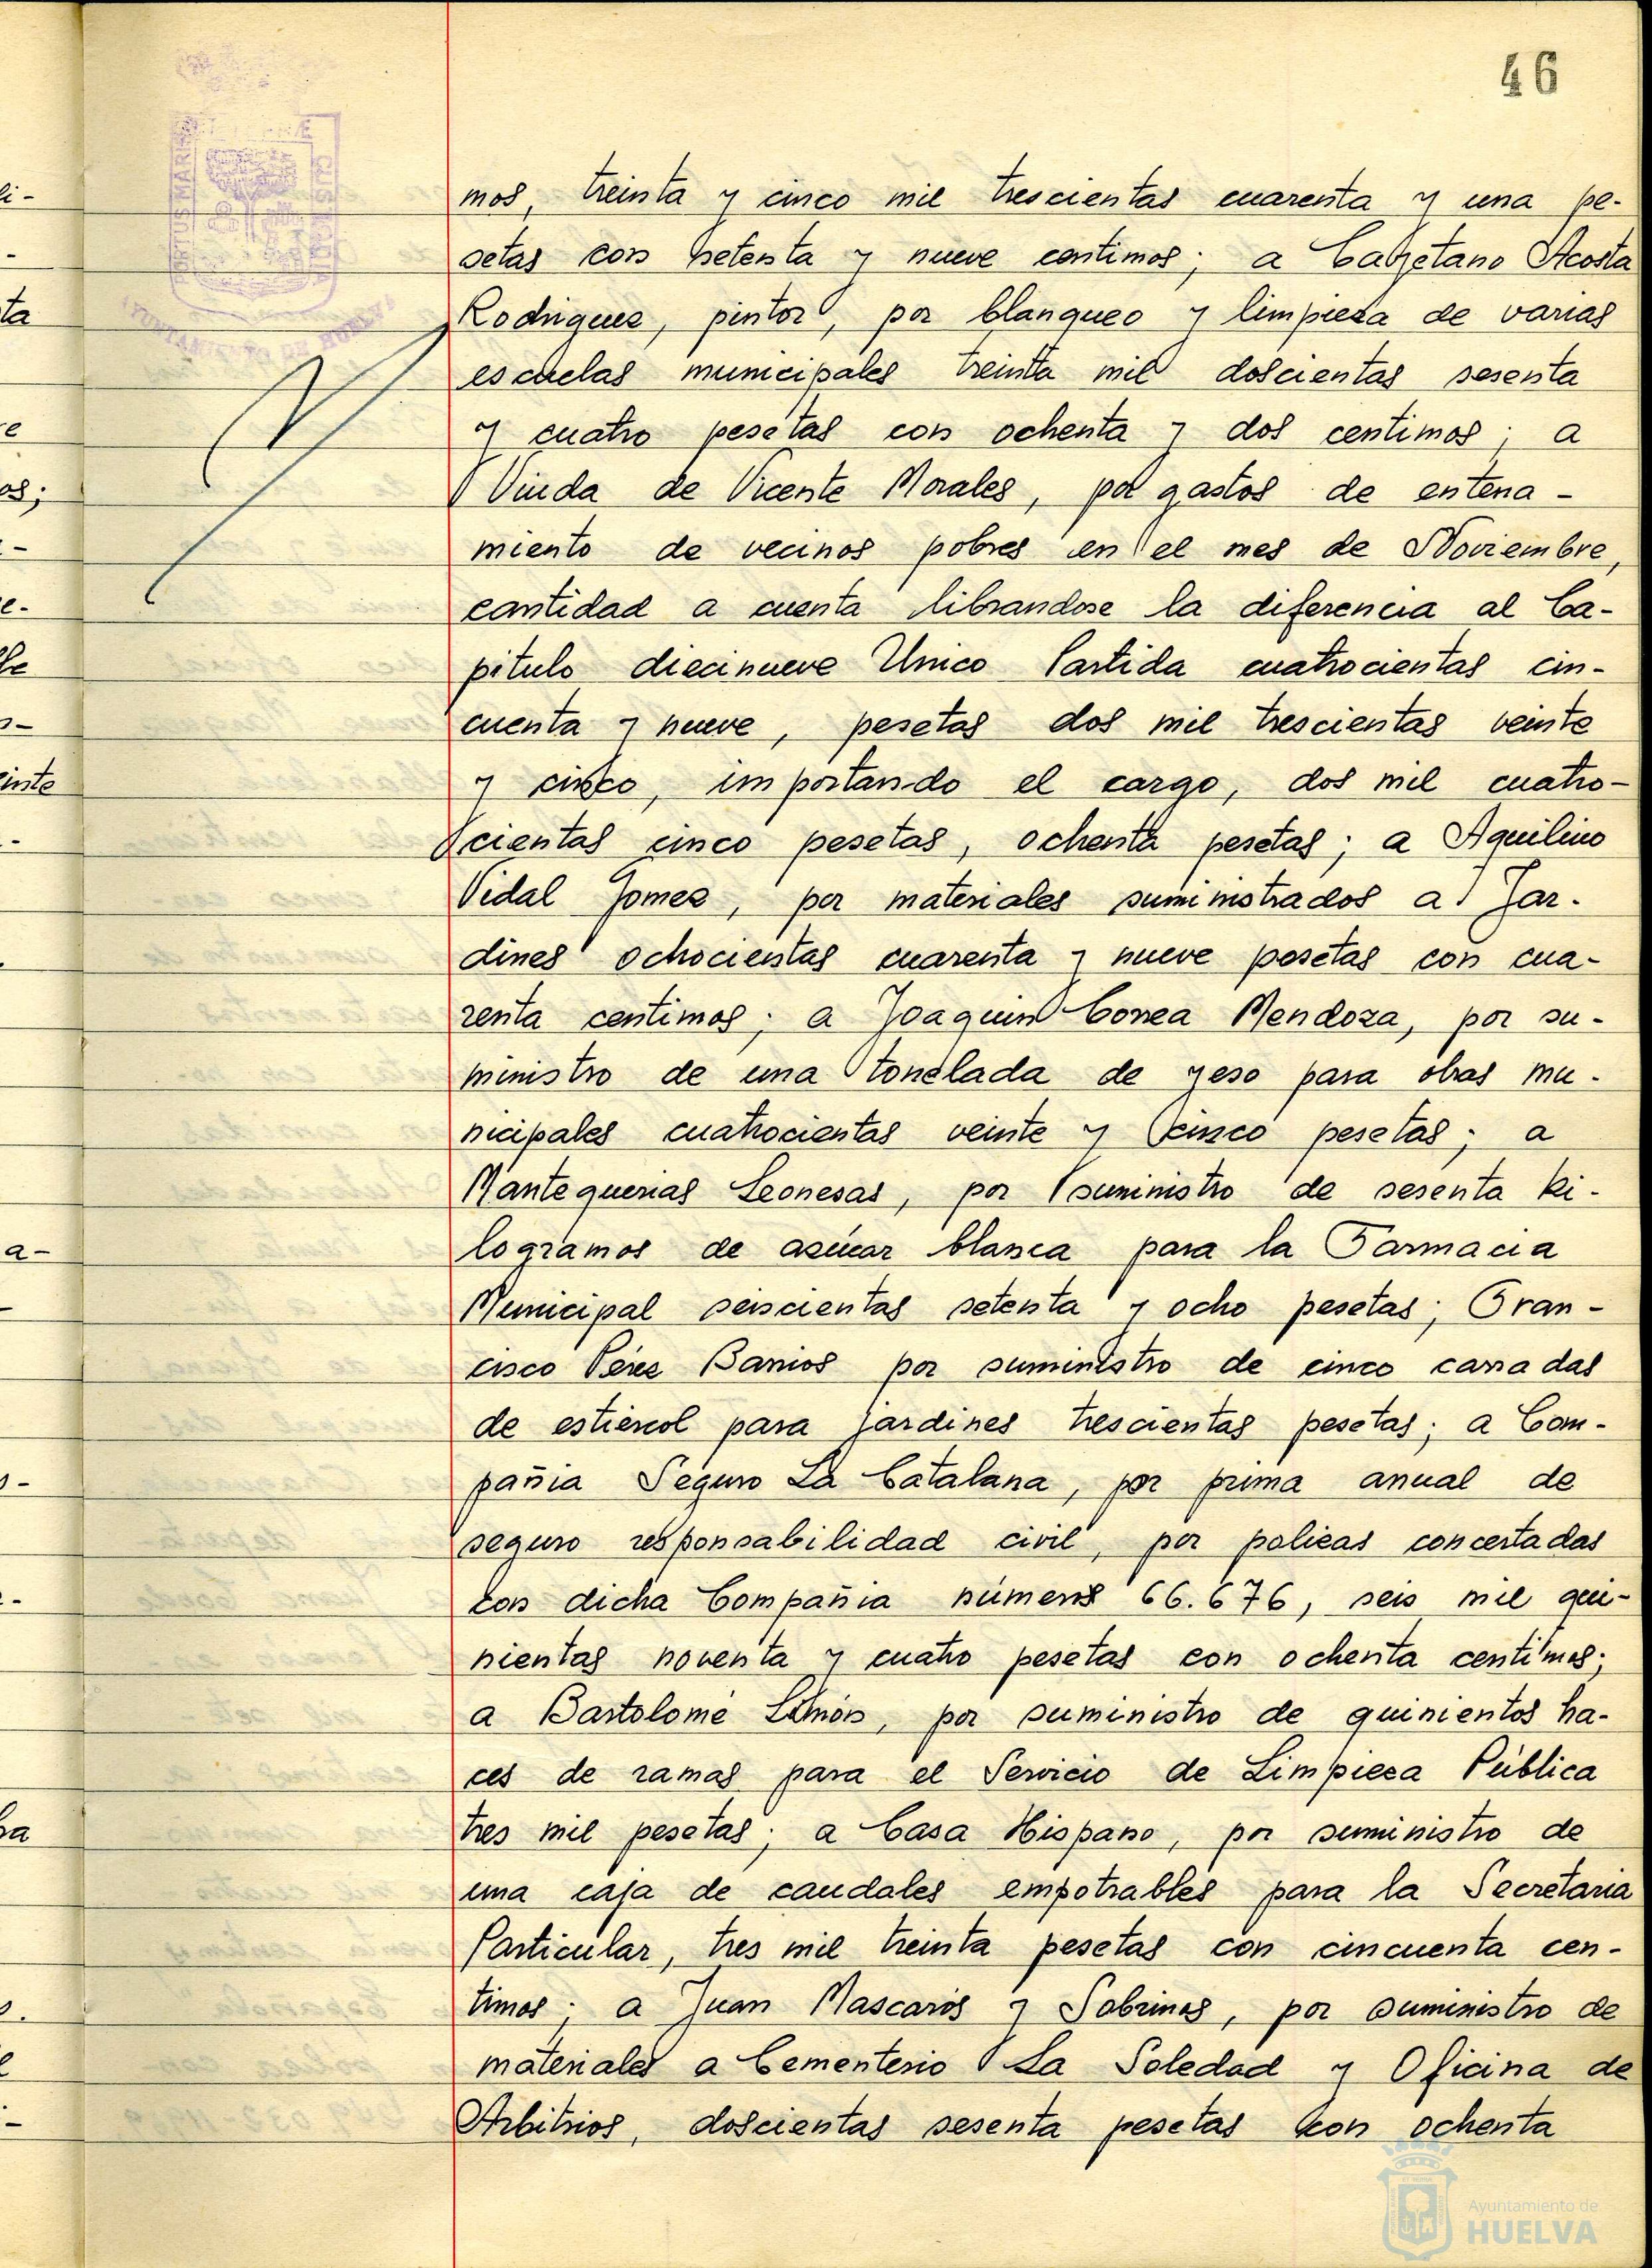 46
mos, treinta y cinco mil trescientas cuarenta y una pe-
setas con setenta y nueve centimos; a Cayetano Acosta
Rodriguez, pintor, por blanqueo y limpieza de varias
escuelas municipales treinta mil doscientas sesenta
y cuatro pesetas con ochenta y dos centimos; a
Viuda de Vicente Morales, por gastos de enterra-
miento de vecinos pobres en el mes de Noviembre,
cantidad a cuenta librandose la diferencia al Ca-
pitulo diecinueve Unico Partida cuatrocientas cin-
cuenta y nueve, pesetas dos mil trescientas veinte
y cinco, importando el cargo, dos mil cuatro-
cientas cinco pesetas, ochenta pesetas; a Aquilino
Vidal Gomez, por materiales suministrados a Jar-
dines ochocientas cuarenta y nueve pesetas con cua-
renta centimos; a Joaquin Correa Mendoza, por su-
ministro de una tonelada de yeso para obras mu-
nicipales cuatrocientas veinte y cinco pesetas; a
Mantequerias Leonesas, por suministro de sesenta ki-
logramos de azúcar blanca para la Farmacia
Municipal seiscientas setenta y ocho pesetas; Fran-
cisco Pérez Barrios por suministro de cinco carradas
de estiércol para jardines trescientas pesetas; a Com-
pañia Seguro La Catalana, por prima anual de
seguro responsabilidad civil, por polizas concertadas
con dicha Compañia número 66.676, seis mil qui-
nientas noventa y cuatro pesetas con ochenta centimos;
a Bartolomé Limón, por suministro de quinientos ha-
ces de ramas para el Servicio de Limpieza Pública
tres mil pesetas; a Casa Hispano, por suministro de
una caja de caudales empotrables para la Secretaria
Particular, tres mil treinta pesetas con cincuenta cen-
timos; a Juan Mascarós y Sobrinos, por suministro de
materiales a Cementerio La Soledad y Oficina de
Arbitrios, doscientas sesenta pesetas con ochenta
Ayuntamiento de
HUELVA